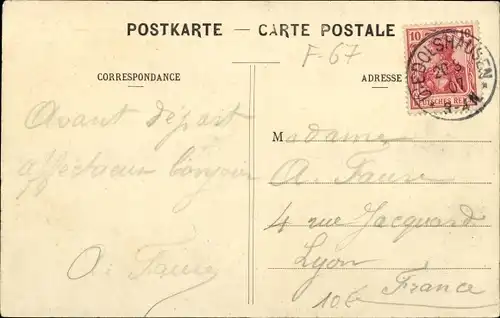 POSTKARTE — CARTE POSTALE
F-67
CORRESPONDANCE
ADRESSE
10 10
DEUTSCHES REICH
DIEDOLSHAUSEN
07
8-9N
Avant départ
affectueux bonjour
A. Faure
Madame
A. Faure
4 rue Jacquard
Lyon
France
10€